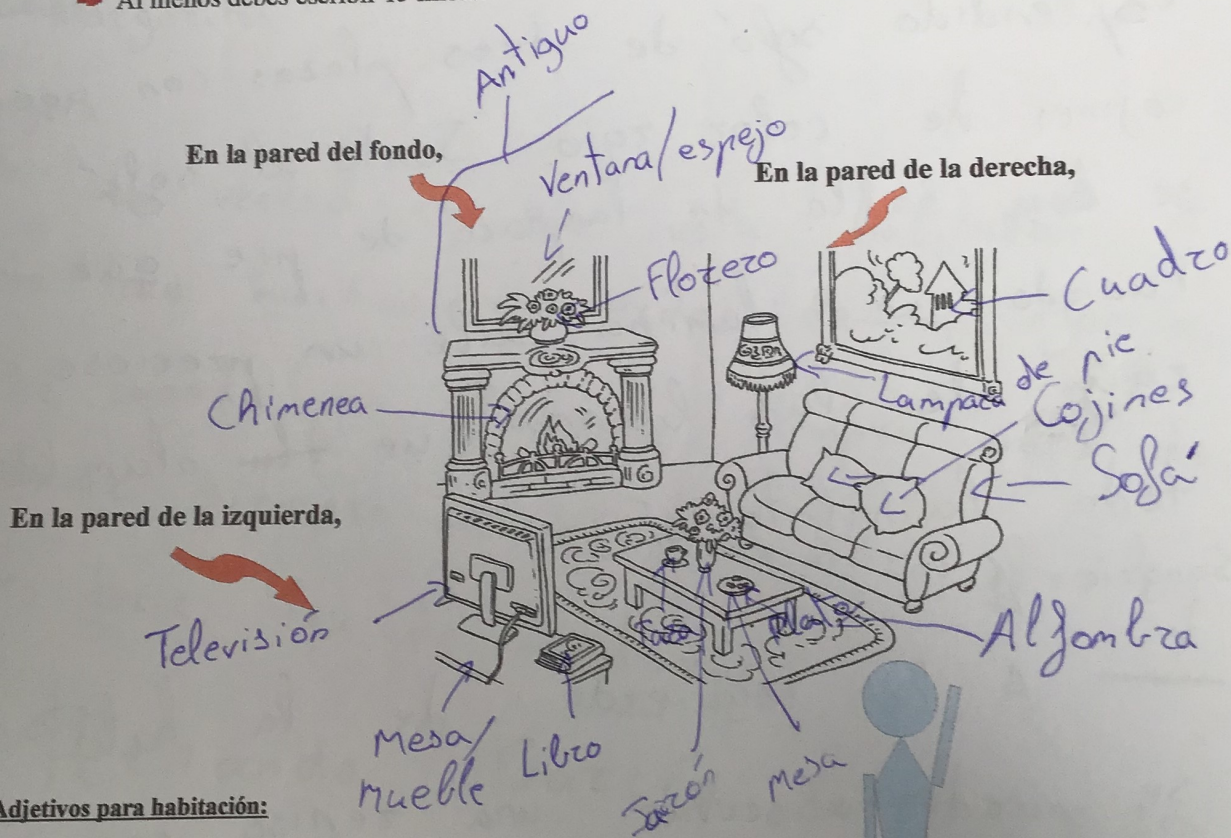 Antiguo
En la pared del fondo,
Ventana/espejo
En la pared de la derecha,
Florero
Cuadro
Lampara de pie
Cojines
Chimenea
Sofá
En la pared de la izquierda,
Televisión
Taza
Plato
Alfombra
Mesa/
mueble
Libro
Jarrón
Mesa
Adjetivos para habitación: